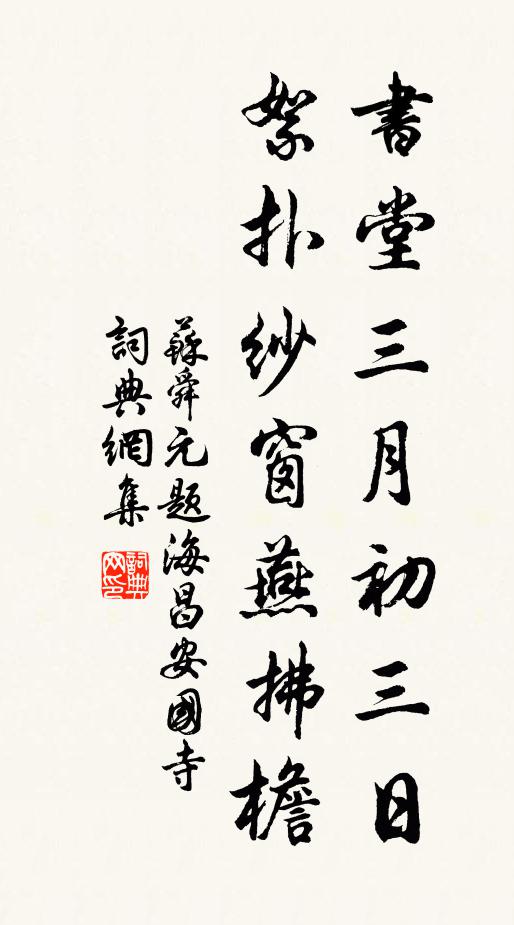 書堂三月初三日
絮扑纱窗燕拂檐
蘇舜元题海昌安國寺
詞典網集
詞典
网印